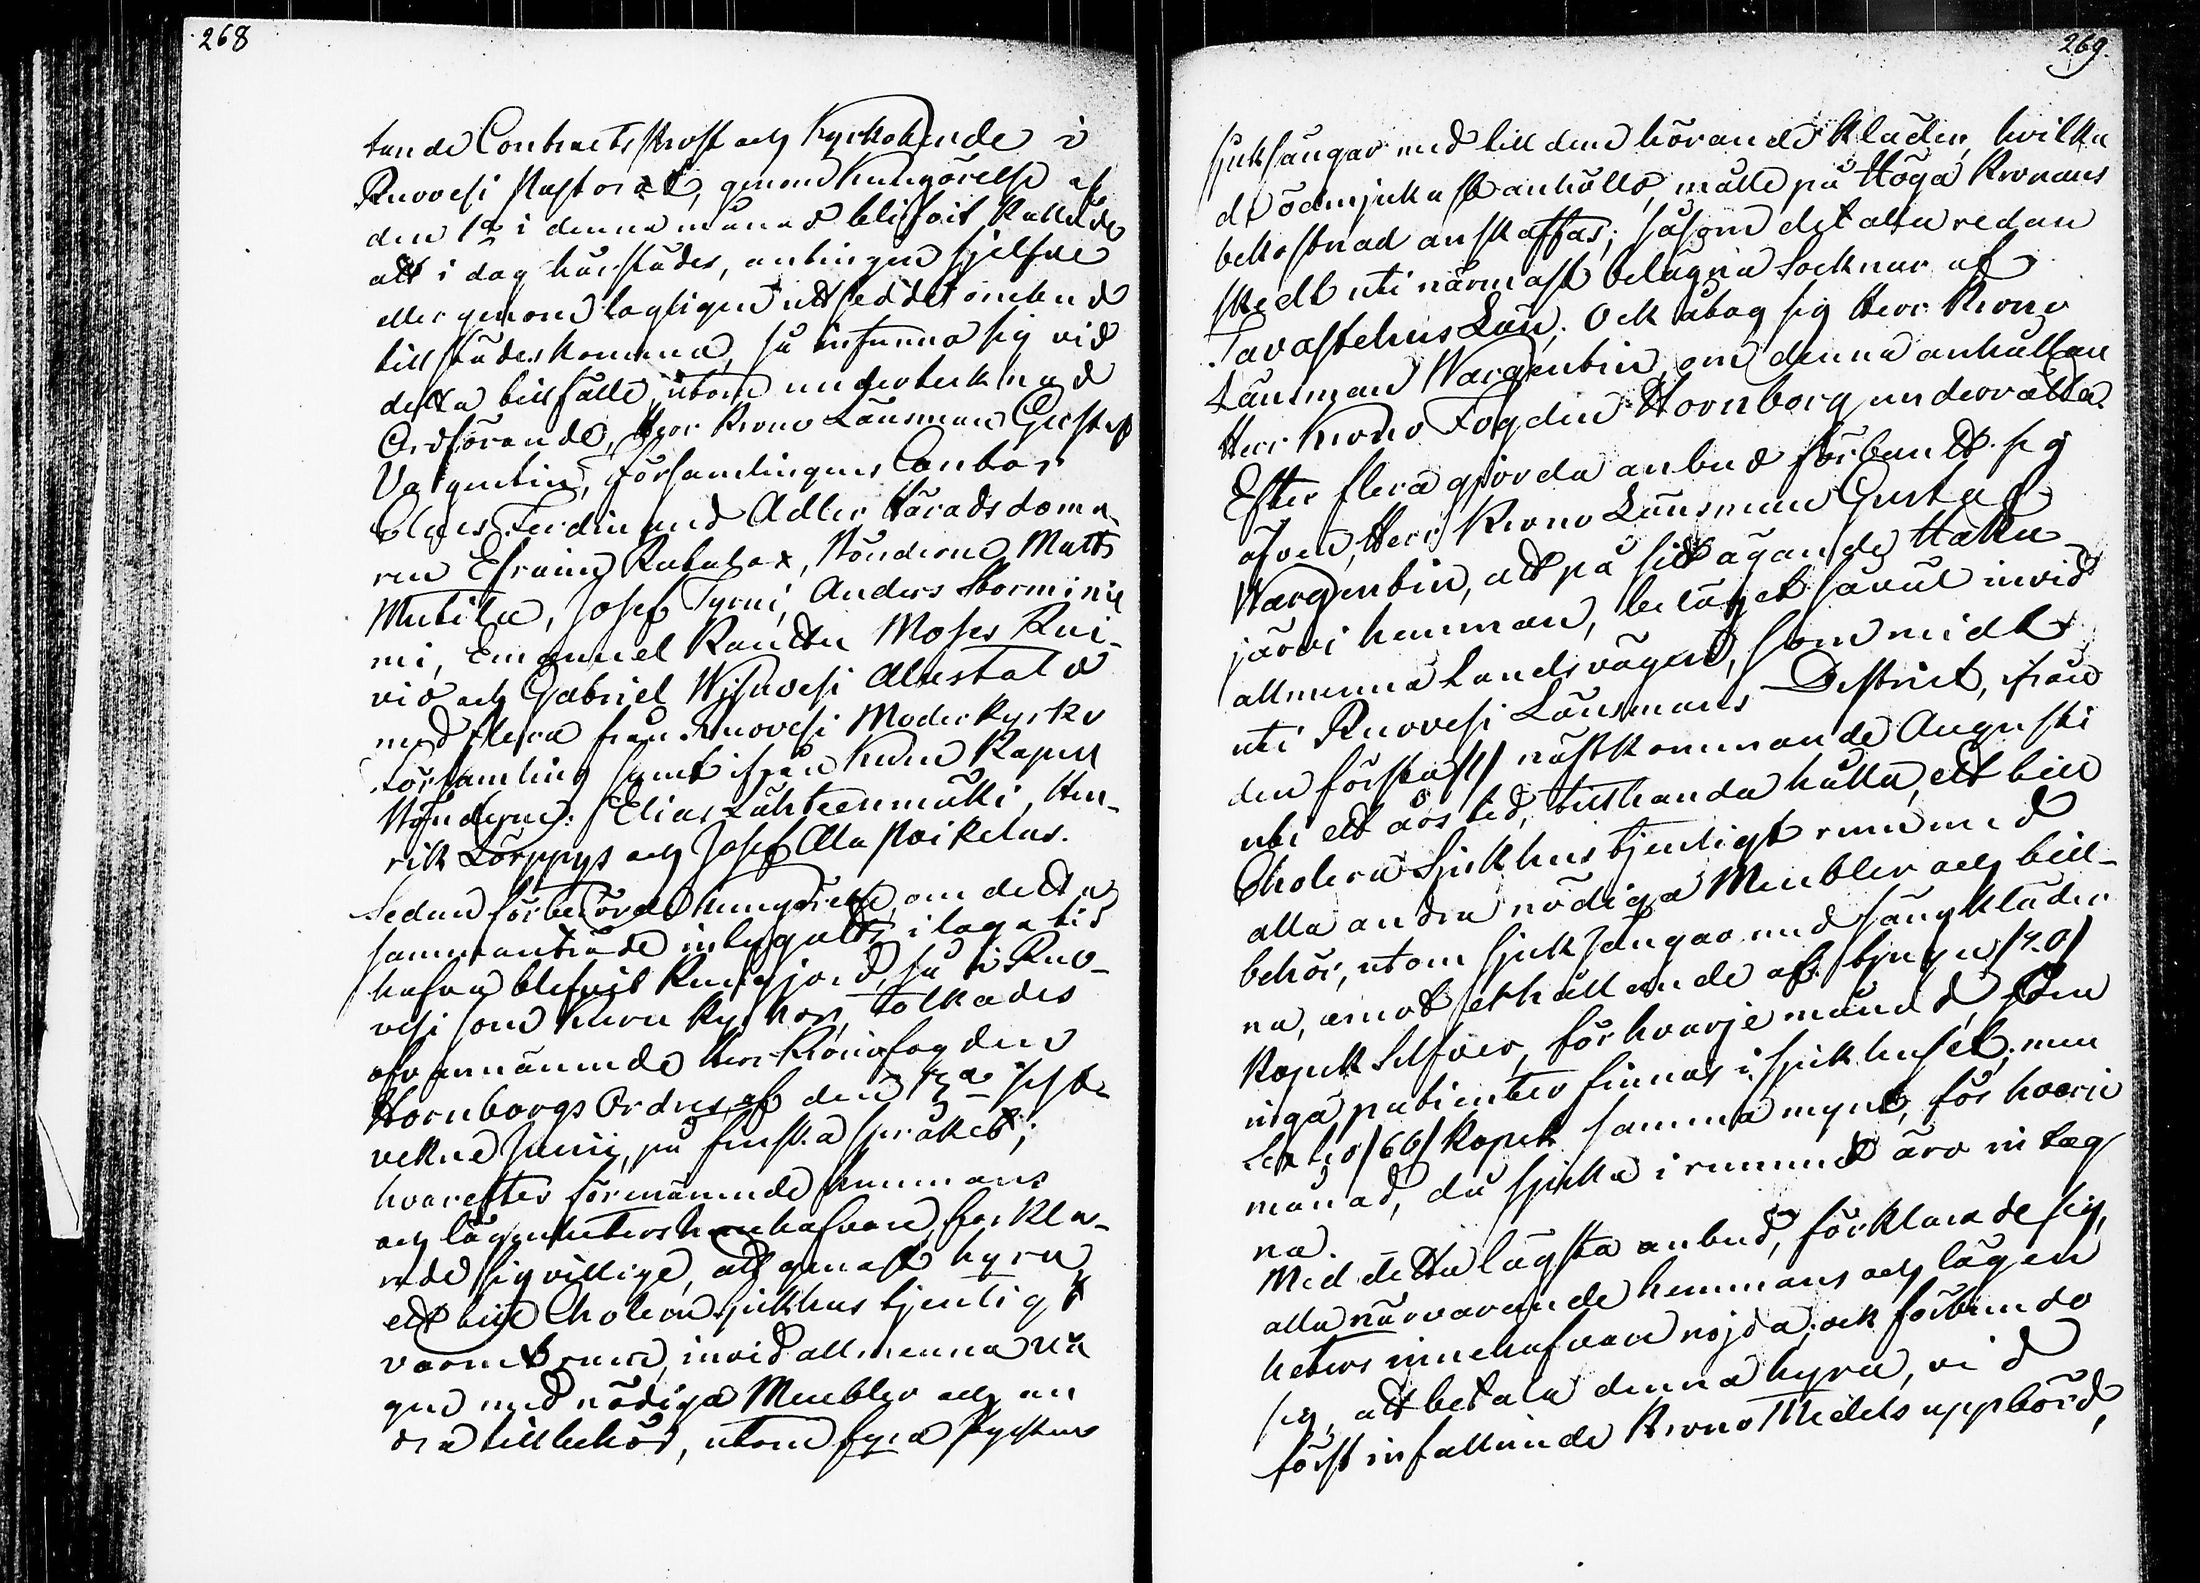 268
tande Contracts Prost och Kyrkoherde i
Ruovesi Pastorat, genom Kungörelse af
den 19 i denna månad blifvit kallade
att i dag härstädes, antingen sjelfve
eller genom lagligen utsedde ombud
tillstädeskomma, så infunno sig vid
detta tillfälle, utom undertecknad
Ordförande, Herr Krono Länsman Gustaf
Vargentin, församlingens Cantor
Claes Ferdinand Adler Häradsdoma-
ren Efraim, Bönderne Matts
Mutila, Josef Tyrni, Anders Storminie
mi, Emanuel Rantta Moses Rui-
vio och Gabriel Wisuvesi Alastalo
med flera från Ruovesi Moderkyrko
församling samt ifrån Kuru Kapell
Bönderne: Elias Lähteenmäki, Hen-
rik Lörppys och Josef Ala Poikelus.
Sedan förberörde kungörelse, om detta
sammanträde inlyst, i laga tid
hafva blifvit kungjord, så i Ruo-
vesi som Kuru kyrkor, tolkades
ofvannämnde herr Kronofogden
Hornborgs Ordres af den 13de sist-
vekne Junii, på finska språket;
hvarefter förenämnde hemmans
och lägenheters innehafvare, förkla-
rade sig villige, att genast hyra
ett till Cholera sjukhus tjenligt
varmt rum, invid allmenna vä
gen med nödiga Meubler och an
dra tillbehör, utom fyra stycken
269.
sjuksängar med till dem hörande kläder, hvilka
de ödmjukast anhöllo, måtte på Höga Kronans
bekostnad anskaffas; såsom det alla redan
skedt uti närmast belägna Socknar af
Tavastehus Län; Ock åtog sig Herr Krono
Länsman Vargentin, om denna anhållan
Herr Krono Fogden Hornborg underrätta.
Efter flera gjorda anbud förbandt sig
äfven, Herr Krono Länsman Gustaf
Wargentin, att på sitt ägande Haku-
järvi hemman, beläget såväl invid
allmenna Landsvägen, som midt
uti Ruovesi Länsmans District, ifrån
den första /1/ nästkommande Augusti
uti ett års tid, tillhanda hålla, ett till
Cholera Sjukhus tjenligt rum med
alla andra nödiga Meubler och till-
behör, utom sjuksängar med sängkläder
na, emot erhållande af tjugu /20/
Kopek Silfver, för hvarje månad, som
inga patienter finnas i sjukhuset; men
Sextio /60/ Kopek samma mynt, för hvarje
månad, då sjuka i rummet äro intag
na.
Med detta lägsta anbud, förklarade sig,
alla närvarande hemmans och lägen
heters innehafvare nöjda; ock förbundo
sig, att betala denna hyra, vid
först infallande Krono Medels uppbörd,